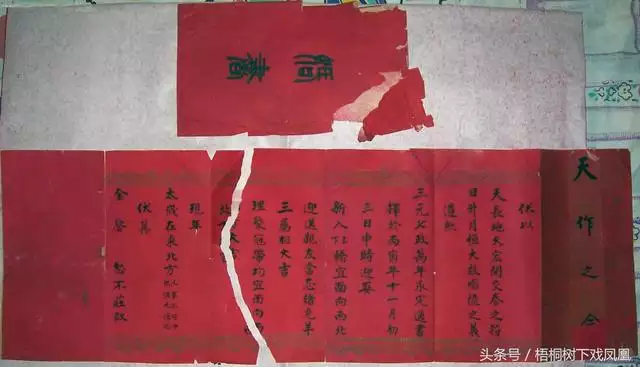 書
天作之合
伏以
天長地久宏開交泰之符
日升月恒大啟恒之義
遵照
三元七政萬年永定通書
擇於丙寅年十一月初
三日申時迎娶
新人下轎宜面向西北
迎送親友當忌猪兔羊
三屬相大吉
理髮冠帶均宜面向西
現年
太歲在東北方
伏冀
恕不莊啟
头条号 / 梧桐树下戏凤凰